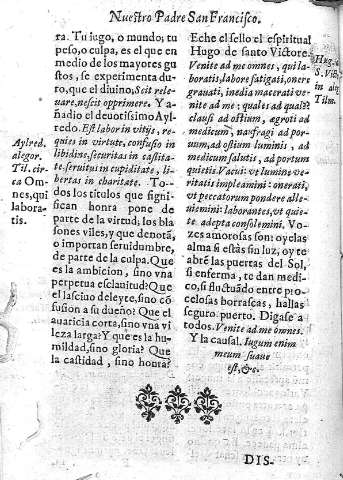 Nuestro Padre San Francisco.
ra. Tu iugo, o mundo; tu
peso, o culpa, es el que en
medio de los mayores gu
stos, se experimenta du-
ro, que el diuino, Scit rele-
uare, nescit opprimere. Y a-
ñadio el deuotissimo Ayl-
redo. Est labor in vitijs, re-
quies in virtute, confusio in
libidine, securitas in castita-
te, seruitus in cupiditate, li-
bertas in charitate. To-
dos los titulos que signi-
fican honra pone de
parte de la virtud; los bla
sones viles, y que denotã,
o importan seruidumbre,
de parte de la culpa. Que
es la ambicion, sino vna
perpetua esclauitud? Que
el lasciuo deleyte, sino cõ
fusion a su dueño? Que el
auaricia corta, sino vna vi
leza larga? Y que es la hu-
mildad, sino gloria? Que
la castidad, sino honra?
Aylred.
alegor.
Til. cir-
ca Om-
nes, qui
labora-
tis.
Eche el sello el espiritual
Hugo de santo Victore.
Venite ad me omnes, qui la-
boratis, labore fatigati, onere
grauati, inedia macerati ve-
nite ad me; quales ad qual?
clausi ad ostium, agroti ad
medicum, naufragi ad por-
tum, ad ostium luminis, ad
medicum salutis, ad portum
quietis. Vacui: vt lumine ve-
ritatis impleamini: onerati,
vt peccatorum pondere alle-
niemini: laborantes, vt quie-
te adepta consolemini. Vo-
zes amorosas son: oyelas
alma si estàs sin luz, oy te
abrẽ las puertas del Sol,
si enferma, te dan medi-
co, si fluctuãdo entre pro-
celosas borrascas, hallas
seguro puerto. Digase a
todos. Venite ad me omnes.
Y la causal. Iugum enim
meum suaue
est, &c.
Hug.
S. Vi
in
Tilm.
DIS-